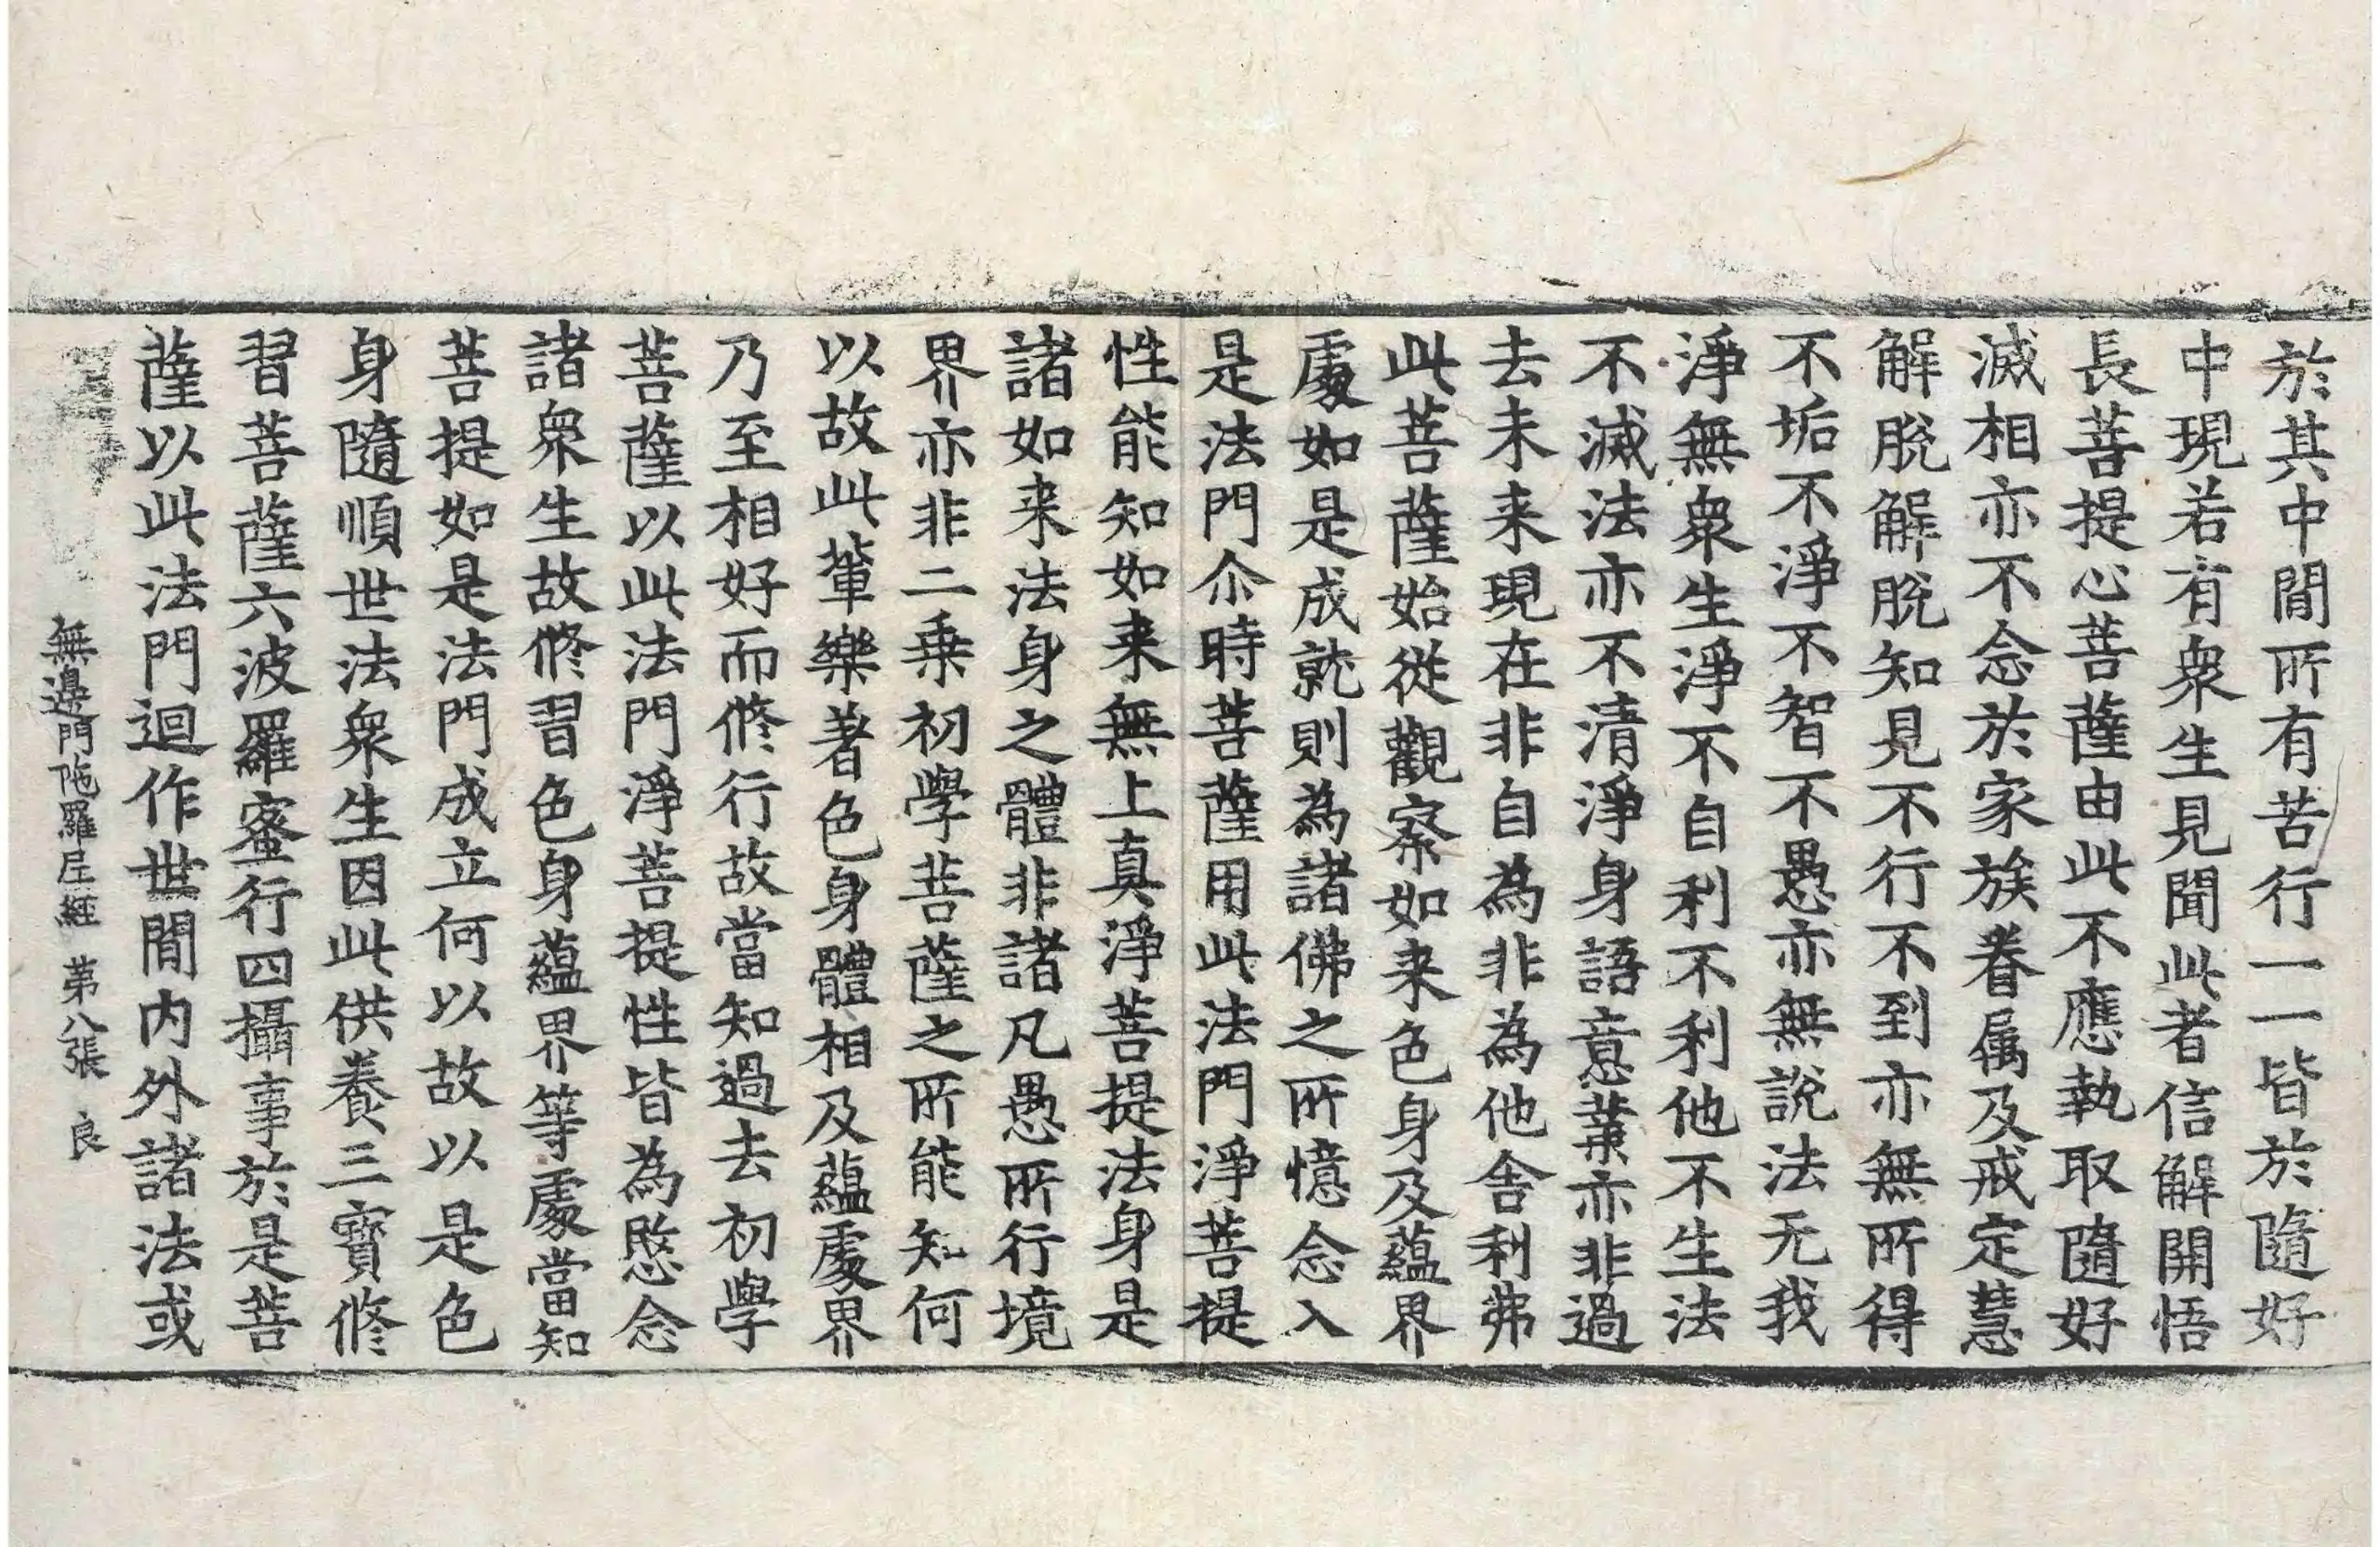 於其中閒所有苦行一一皆於隨好
中現若有衆生見聞此者信解開悟
長菩提心菩薩由此不應執取隨好
滅相亦不念於家族眷属及戒定慧
解脫解脫知見不行不到亦無所得
不垢不淨不智不愚亦無說法无我
淨無衆生淨不自利不利他不生法
不滅法亦不清淨身語意業亦非過
去未来現在非自為非為他舎利弗
此菩薩始從觀察如来色身及蘊界
處如是成就則為諸佛之所憶念入
是法門尒時菩薩用此法門淨菩提
性能知如来無上真淨菩提法身是
諸如来法身之體非諸凡愚所行境
界亦非二乗初學菩薩之所能知何
以故此軰樂著色身體相及蘊處界
乃至相好而修行故當知過去初學
菩薩以此法門淨菩提性皆為愍念
諸衆生故修習色身蘊界等處當知
菩提如是法門成立何以故以是色
身隨順世法衆生因此供養三寶修
習菩薩六波羅蜜行四攝事於是菩
薩以此法門迴作世閒内外諸法或
無邊門陁羅尼經 第八張 良